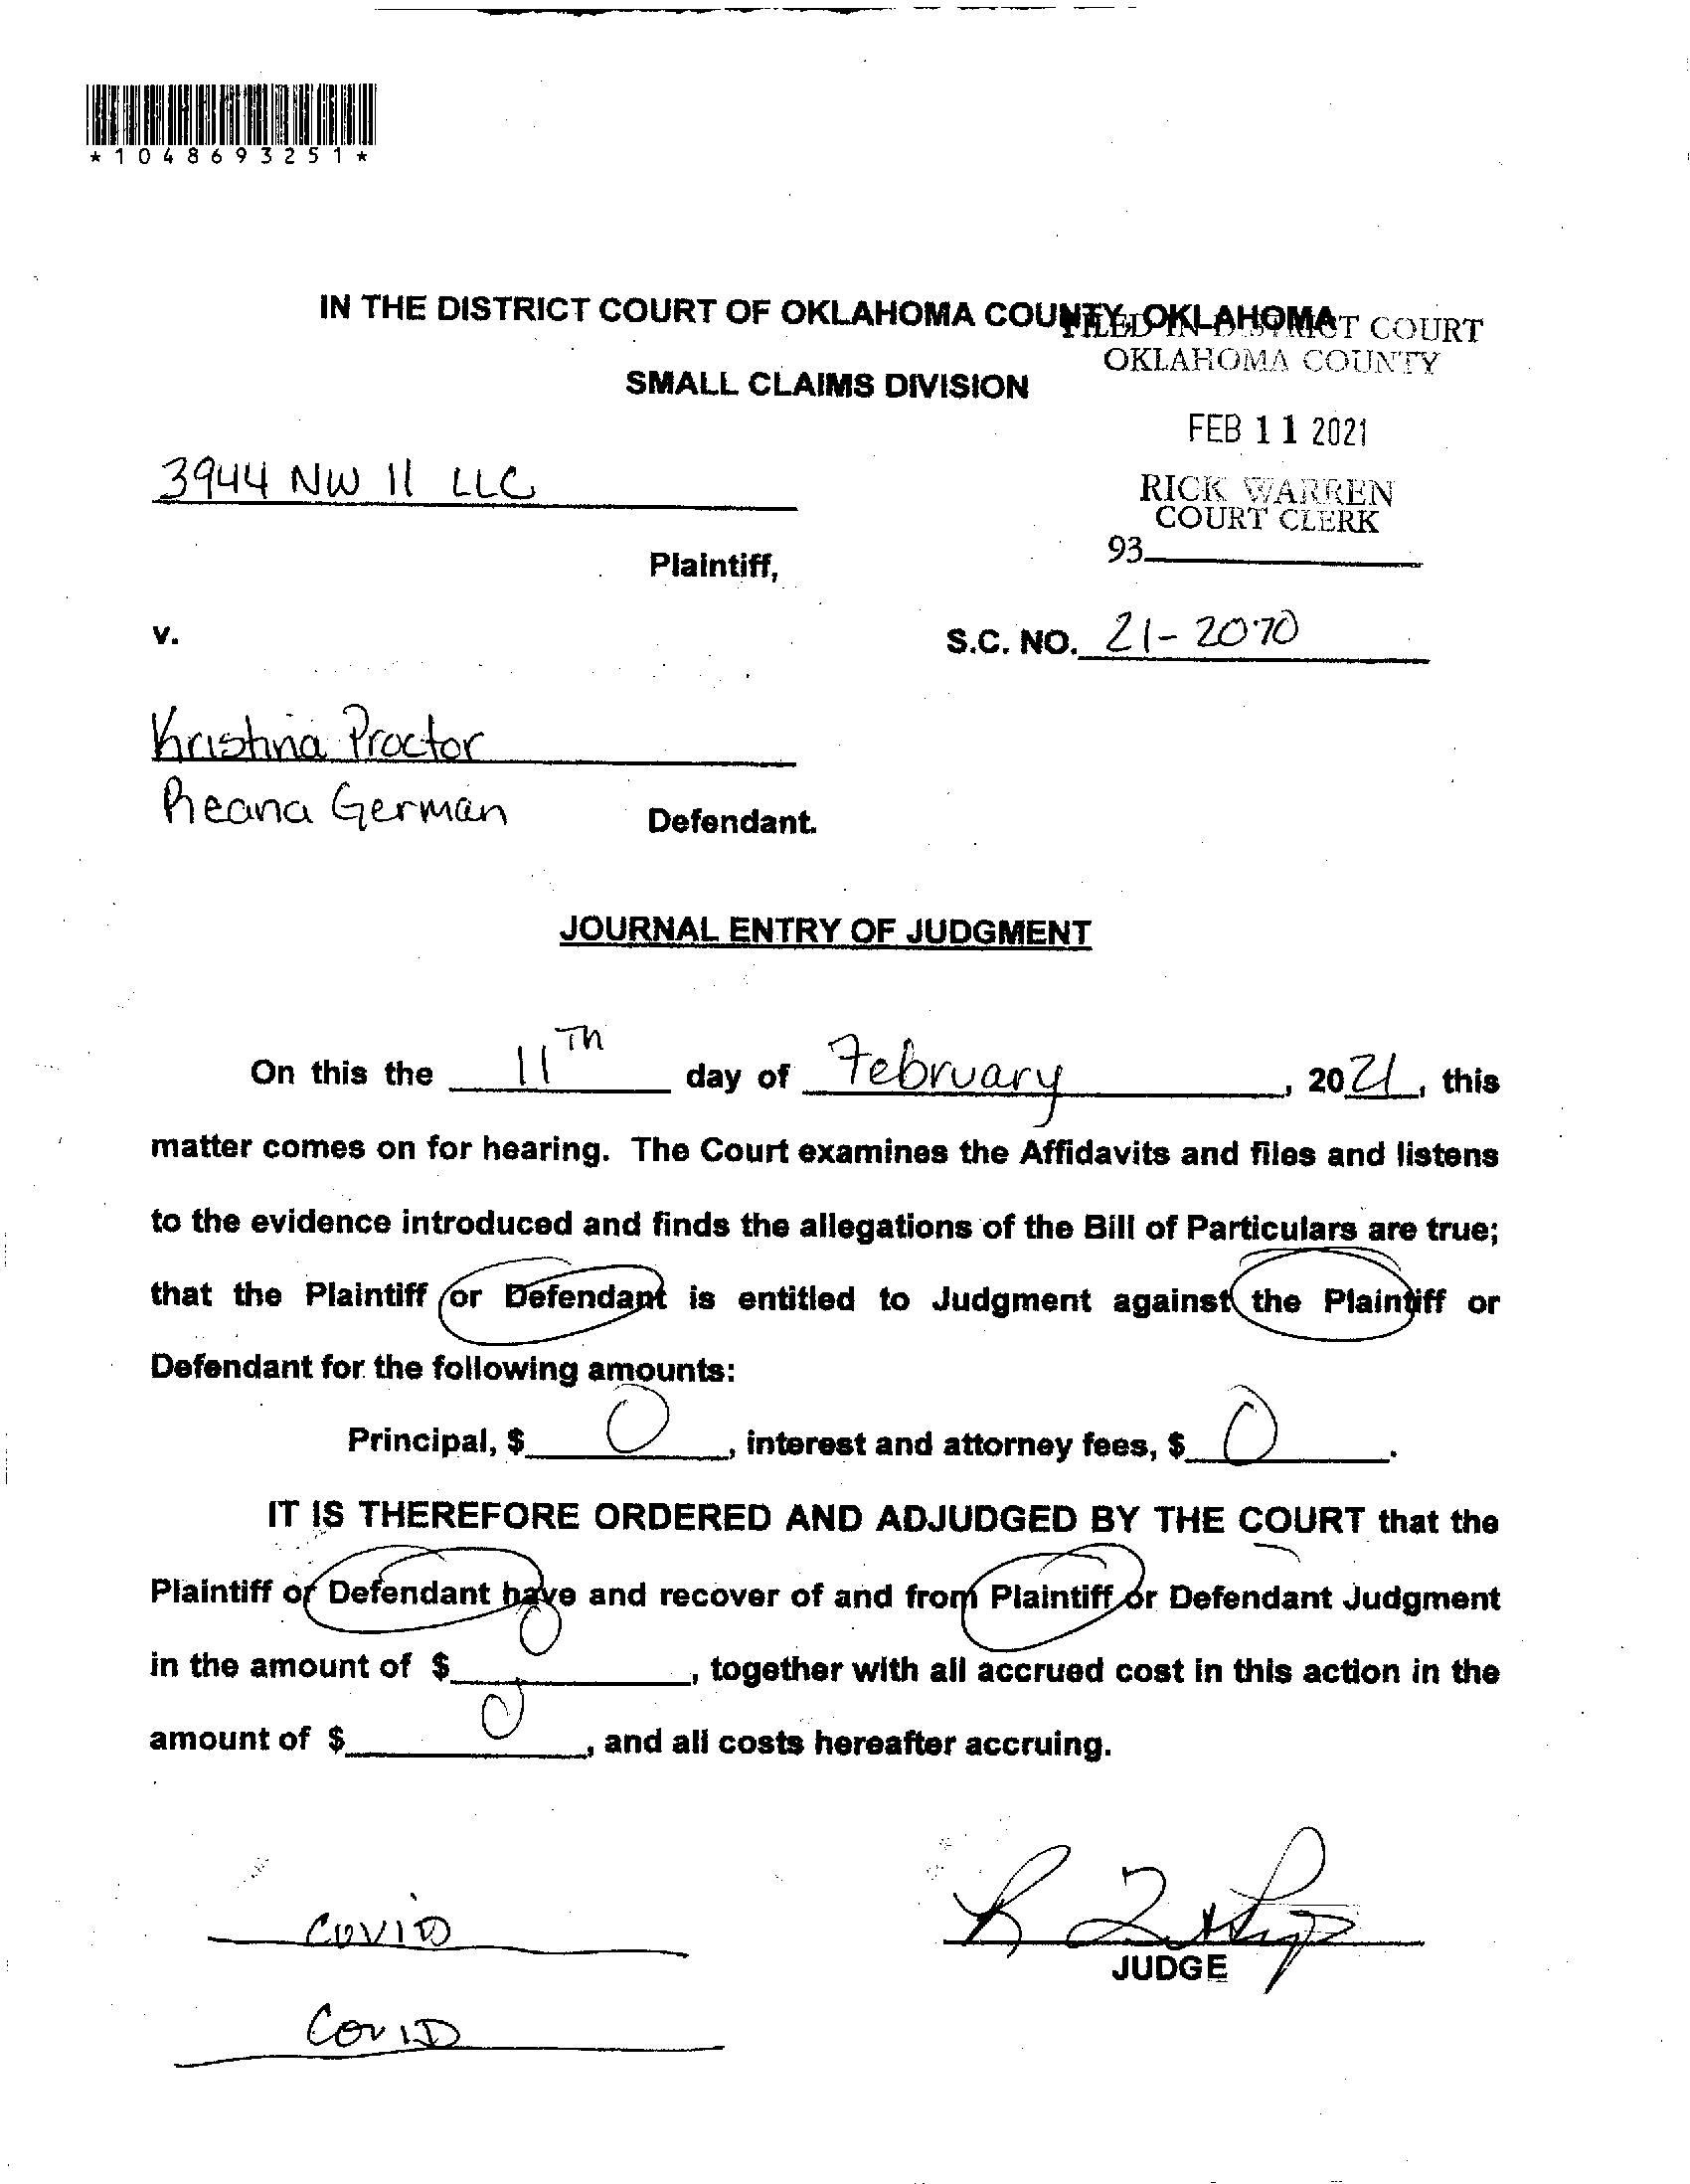 *1048693251*
IN THE DISTRICT COURT OF OKLAHOMA COUNTY, OKLAHOMA
FILED IN DISTRICT COURT
OKLAHOMA COUNTY
SMALL CLAIMS DIVISION
FEB 11 2021
3944 NW 11 LLC
RICK WARREN
COURT CLERK
93
Plaintiff,
v.
S.C. NO. 21-2070
Kristina Proctor
Reana German
Defendant.
JOURNAL ENTRY OF JUDGMENT
On this the 11Th day of February, 2021, this
matter comes on for hearing. The Court examines the Affidavits and files and listens
to the evidence introduced and finds the allegations of the Bill of Particulars are true;
that the Plaintiff or Defendant is entitled to Judgment against the Plaintiff or
Defendant for the following amounts:
Principal, $ 0, interest and attorney fees, $ 0.
IT IS THEREFORE ORDERED AND ADJUDGED BY THE COURT that the
Plaintiff or Defendant have and recover of and from Plaintiff or Defendant Judgment
in the amount of $ 0, together with all accrued cost in this action in the
amount of $ 0, and all costs hereafter accruing.
COVID
JUDGE
COVID